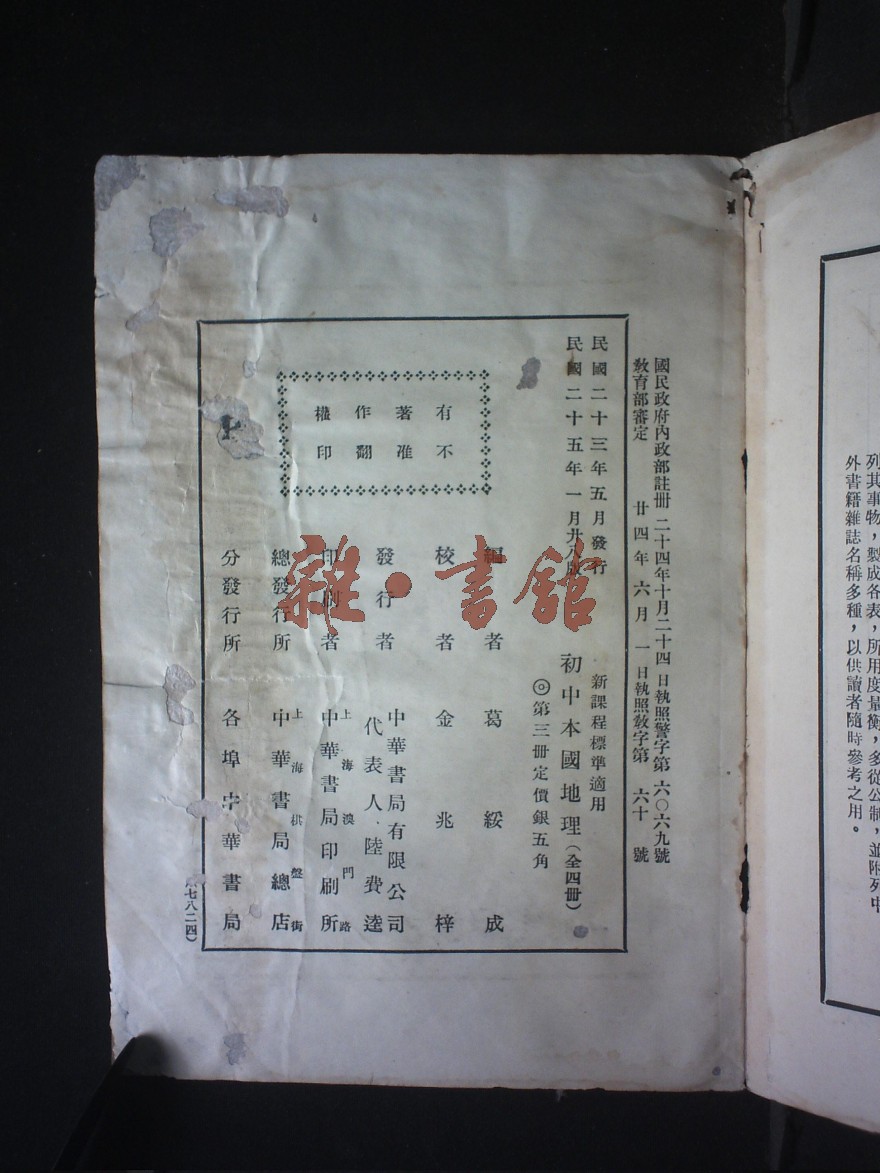 列其事物，製成各表，所用度量衡，多從公制，並附列中
外書籍雜誌名稱多種，以供讀者隨時參考之用。
國民政府內政部註冊 二十四年十月二十四日執照警字第六〇六九號
教育部審定 廿四年六月一日執照教字第六十號
民國二十三年五月發行
民國二十五年一月廿八版
新課程標準適用
初中本國地理（全四冊）
◎第三冊定價銀五角
有不
著准
作翻
權印
編者 葛綏成
校者 金兆梓
發行者 中華書局有限公司
代表人 陸費逵
印刷者 上海澳門路
中華書局印刷所
總發行所 上海棋盤街
中華書局總店
分發行所 各埠中華書局
七八二四）
雜·書館